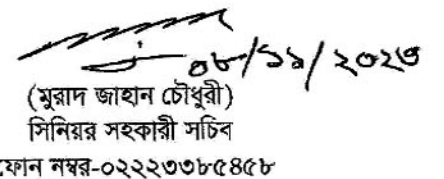 ০৮/১১/২০২৩
(মুরাদ জাহান চৌধুরী)
সিনিয়র সহকারী সচিব
ফোন নম্বর-০২২২৩৩৮৫৪৫৮